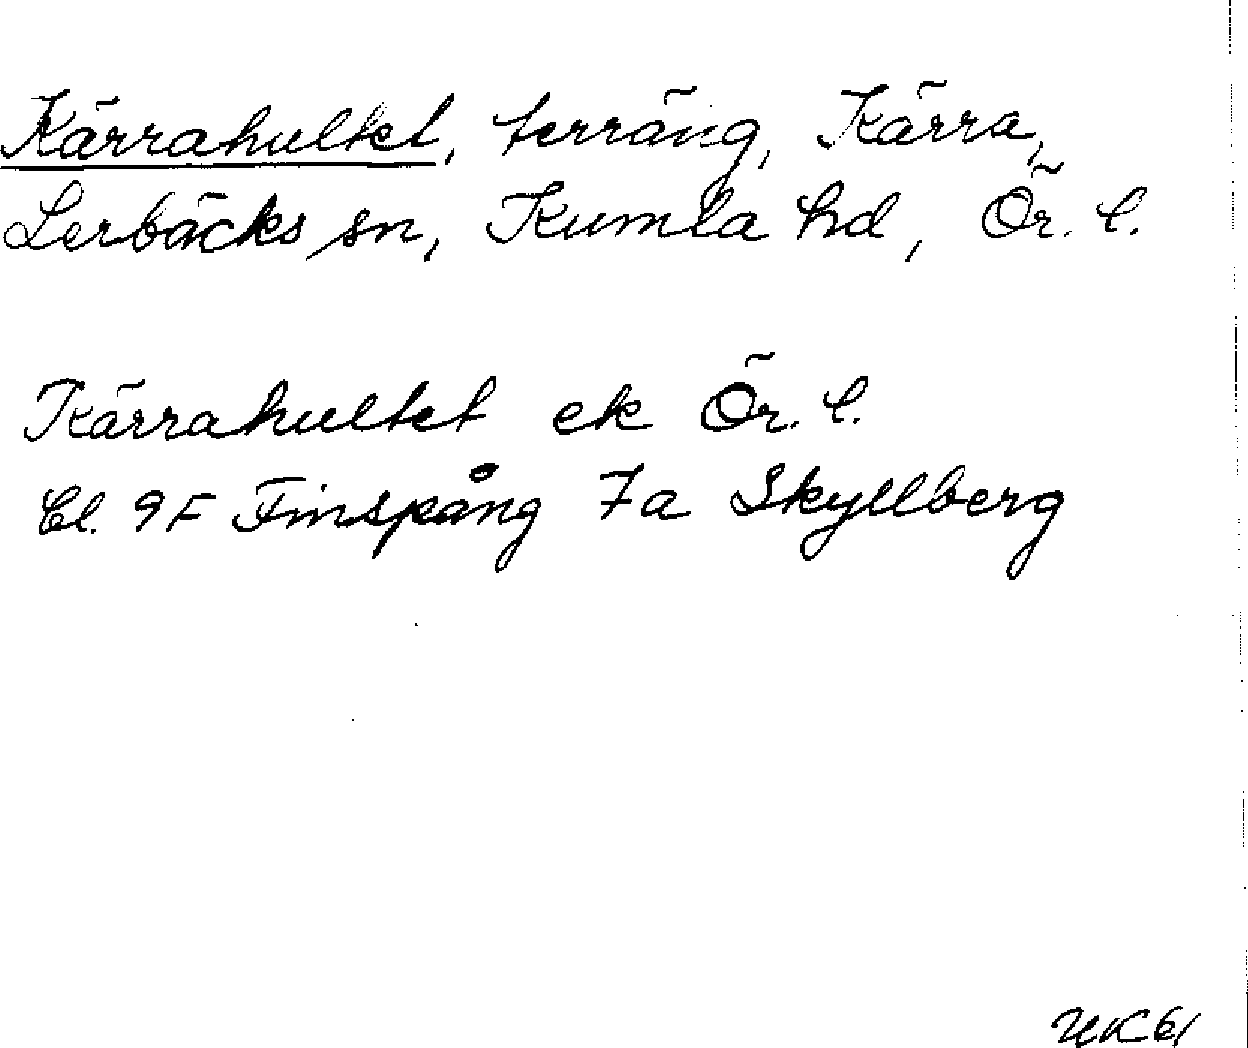 Kärrahultet, terräng, Kärra,
Lerbäcks sn, Kumla hd, Ör. l.
Kärrahultet ek Ör. l.
bl. 9F Finspång 7a Skyllberg